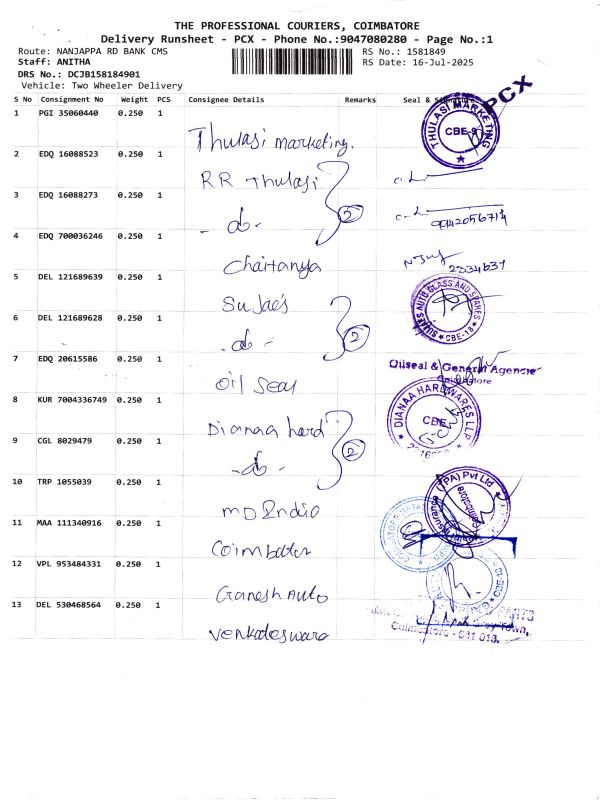 THE PROFESSIONAL COURIERS, COIMBATORE
Delivery Runsheet - PCX - Phone No.:9047080280 - Page No.:1
Route: NANJAPPA RD BANK CMS
RS No.: 1581849
Staff: ANITHA
RS Date: 16-Jul-2025
DRS No.: DCJB158184901
Vehicle: Two Wheeler Delivery
S No Consignment No Weight PCS Consignee Details Remarks Seal & Signature
PCX
1 PGI 35060440 0.250 1 Thulasi marketing.
THULASI MARKETING
CBE-9
2 EDQ 16088523 0.250 1 RR Thulasi
3 EDQ 16088273 0.250 1 -do-
2
9042056714
4 EDQ 700036246 0.250 1 Chaitanya
2334637
5 DEL 121689639 0.250 1 Sujaes
AUTO GLASS AND SPARES
CBE-18
6 DEL 121689628 0.250 1 -do-
2
7 EDQ 20615586 0.250 1 Oil Seal
Oilseal & General Agencie
Coimbatore
8 KUR 7004336749 0.250 1 Dianaa hard
DIANAA HARDWARES LLP
CBE
9 CGL 8029479 0.250 1 -do-
2
10 TRP 1055039 0.250 1 MD India
Insurance (TPA) Pvt Ltd
Coimbatore
11 MAA 111340916 0.250 1 Coimbatore
12 VPL 953484331 0.250 1 Ganesh Auto
13 DEL 530468564 0.250 1 Venkadeswara
PARTS
Town,
Coimbatore - 641 018.